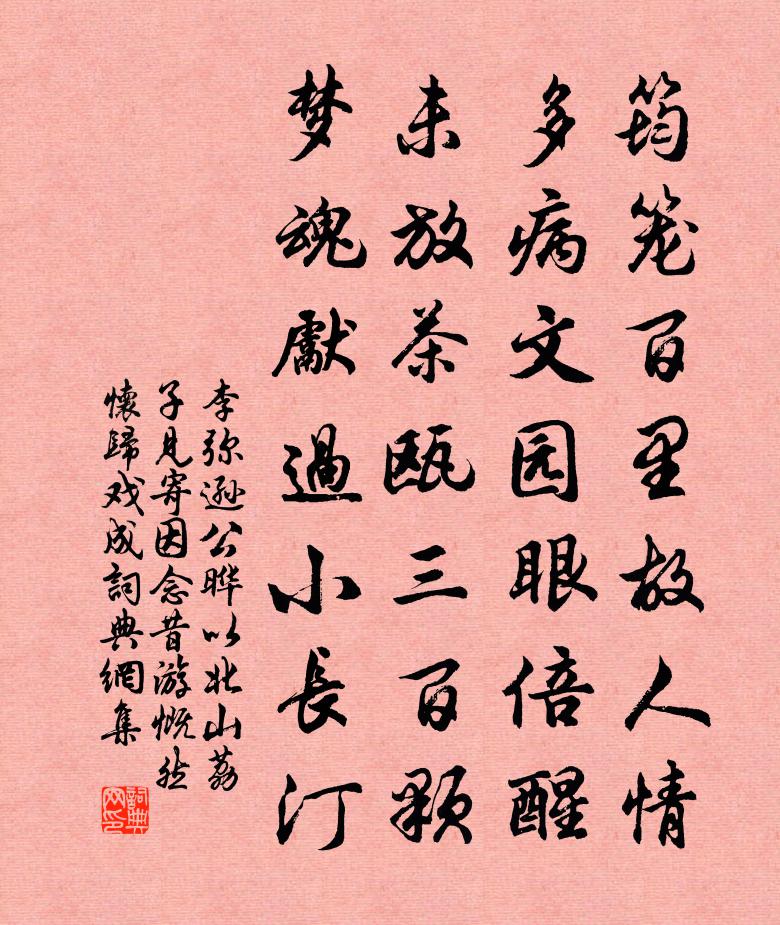 筠笼百里故人情
多病文园眼倍醒
未放茶瓯三百顆
梦魂獻過小長汀
李弥遜公晔以北山荔
子見寄因念昔游慨然
懷歸戏成詞典網集
詞典
网印